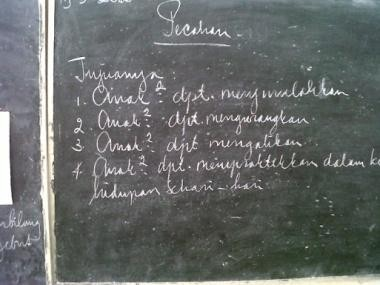 Pecahan
Tujuannya :
1. Anak² dpt. menjumlahkan
2. Anak² dpt. mengurangkan
3. Anak² dpt mengalikan
4. Anak² dpt. mempraktekkan dalam ke
hidupan sehari-hari